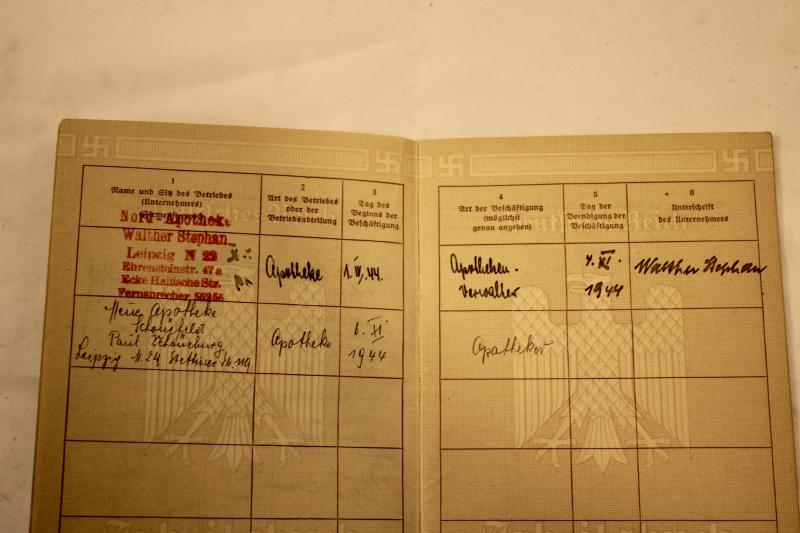 1
Name und Sitz des Betriebes
(Unternehmers)
(Firmenstempel)
2
Art des Betriebes
oder der
Betriebsabteilung
3
Tag des
Beginns der
Beschäftigung
Nord-Apotheke
Walther Stephan
Leipzig N 22
Ehrensteinstr. 47a
Ecke Hallische Str.
Fernsprecher 56256
Apotheke
44.
Neue Apotheke
Schönefeld
Paul
Leipzig
Apotheke
6. XI
1944
4
Art der Beschäftigung
(möglichst
genau angeben)
5
Tag der
Beendigung der
Beschäftigung
6
Unterschrift
des Unternehmers
Apotheken-
Verwalter
XI.
1944
Walther Stephan
Apotheker